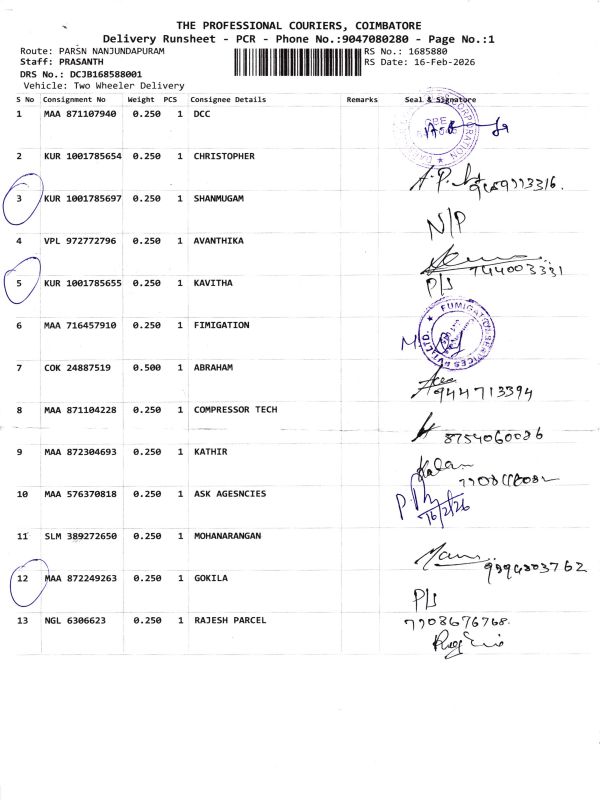 THE PROFESSIONAL COURIERS, COIMBATORE
Delivery Runsheet - PCR - Phone No.:9047080280 - Page No.:1
Route: PARSN NANJUNDAPURAM RS No.: 1685880
Staff: PRASANTH RS Date: 16-Feb-2026
DRS No.: DCJB168588001
Vehicle: Two Wheeler Delivery
S No Consignment No Weight PCS Consignee Details Remarks Seal & Signature
1 MAA 871107940 0.250 1 DCC
2 KUR 1001785654 0.250 1 CHRISTOPHER
3 KUR 1001785697 0.250 1 SHANMUGAM
N/P
4 VPL 972772796 0.250 1 AVANTHIKA
744003331
5 KUR 1001785655 0.250 1 KAVITHA
P/S
6 MAA 716457910 0.250 1 FIMIGATION
FUMIGATION SERVICES PVT LTD
7 COK 24887519 0.500 1 ABRAHAM
9444713394
8 MAA 871104228 0.250 1 COMPRESSOR TECH
8754060086
9 MAA 872304693 0.250 1 KATHIR
Kalam
10 MAA 576370818 0.250 1 ASK AGESNCIES
16/2/26
11 SLM 389272650 0.250 1 MOHANARANGAN
9994803762
12 MAA 872249263 0.250 1 GOKILA
P/S
13 NGL 6306623 0.250 1 RAJESH PARCEL
7708676768